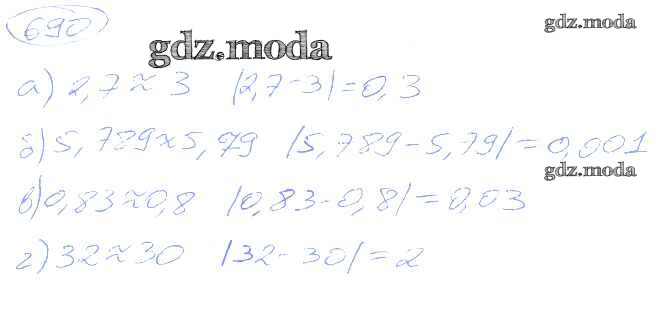 690
gdz.moda
gdz.moda
а) 2,7 ≈ 3 |2,7 - 3| = 0,3
б) 5,789 ≈ 5,79 |5,789 - 5,79| = 0,001
gdz.moda
в) 0,83 ≈ 0,8 |0,83 - 0,8| = 0,03
г) 32 ≈ 30 |32 - 30| = 2
gdz.moda